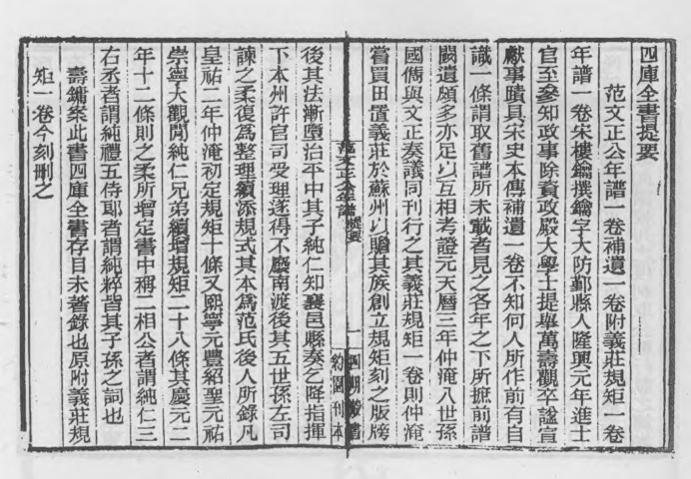 四庫全書提要
范文正公年譜一卷補遺一卷附義莊規矩一卷
年譜一卷宋樓鑰撰鑰字大防鄞縣人隆興元年進士
官至參知政事除資政殿大學士提舉萬壽觀卒謚宣
獻事蹟具宋史本傳補遺一卷不知何人所作前有自
識一條謂取舊譜所未載者見之各年之下所摭前譜
闕遺頗多亦足以互相考證元天曆三年仲淹八世孫
國儁與文正奏議同刊行之其義莊規矩一卷則仲淹
嘗買田置義莊於蘇州以贍其族創立規矩刻之版牓
范文正公年譜 提要 一 四明叢書 約園刊本
後其法漸隳治平中其子純仁知襄邑縣奏乞降指揮
下本州許官司受理遂得不廢南渡後其五世孫左司
諫之柔復為整理續添規式其本為范氏後人所錄凡
皇祐二年仲淹初定規矩十條又熙寧元豐紹聖元祐
崇寧大觀閒純仁兄弟續增規矩二十八條其慶元二
年十二條則之柔所增定書中稱二相公者謂純仁三
右丞者謂純禮五侍郎者謂純粹皆其子孫之詞也
壽鏞案此書四庫全書存目未著錄也原附義莊規
矩一卷今刻刪之